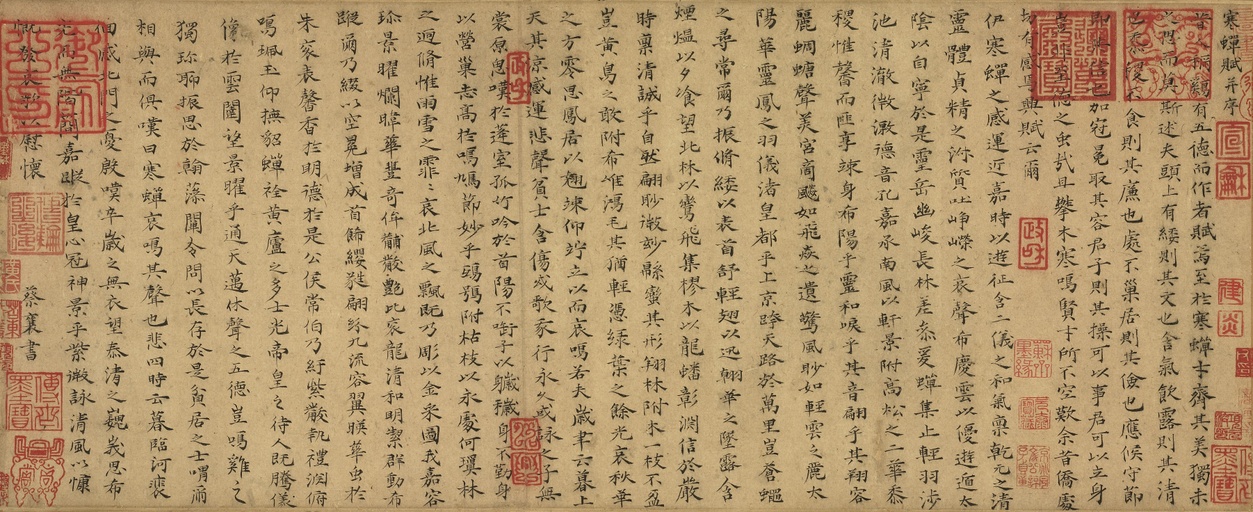 寒蟬賦并序
昔人稱雞有五德而作者賦焉至於寒蟬才齊其美獨未
之思而莫斯述夫頭上有緌則其文也含氣飲露則其清
也黍稷不食則其廉也處不巢居則其儉也應候守節
則其信也加冠冕取其容君子則其操可以事君可以立身
豈非至德之虫哉且攀木寒鳴賢才所不空歎余昔僑處
切有感焉興賦云爾
伊寒蟬之感運近嘉時以遊征含二儀之和氣稟乾元之清
靈體貞精之淑質吐崢嶸之哀聲希慶雲以優遊遁太
陰以自寧於是靈岳幽峻長林差叅爰蟬集止輕羽涉
池清澈微激德音孔嘉承南風以軒景附高松之二華黍
稷惟馨而匪享竦身希陽乎靈和唳乎其音翩乎其翔容
麗蜩螗聲美宮商飄如飛焱之遺驚風眇如輕雲之麗太
陽華靈鳳之羽儀渚皇都乎上京跨天路於萬里豈蒼蠅
之尋常爾乃振脩緌以表首舒輕翅以迅翰華之墜露含
煙熅以夕飡望北林以鸞飛集樛木以龍蟠彰淵信於嚴
時稟清誠乎自然翩眇微妙緜蠻其形翔林附木一枝不盈
豈黃鳥之敢附布唯鴻毛其猶輕憑綠葉之餘光哀秋華
之方零思鳳居以翹竦仰竚立以而哀鳴若夫歲聿云暮上
天其涼感運悲聲貧士含傷或歌我行永久或詠之子無
裳原思嘆於蓬室孤竹吟於首陽不銜子以穢身不勤身
以營巢志高於鳲鳩節妙乎鴟鴞附枯枝以永處何瓊林
之迴脩惟雨雪之霏〻哀北風之飄既乃彫以金采圖我嘉容
珎景曜爛暐華豐奇侔黼黻艷比袞龍清和明潔群動希
蹤爾乃綴以空冕增成首飾纓蕤翩紛九流容翼暎華虫於
朱袞表馨香於明德於是公侯常伯乃紆紫黻執禮淵俯
鳴珮玉仰撫貂蟬飾黃廬之多士光帝皇之侍人既騰儀
像於雲闥望景曜乎通天邁休聲之五德豈鳴雞之
獨珎聊振思於翰藻闡令問以長存於是貧居之士喟爾
相與而俱嘆曰寒蟬哀鳴其聲也悲四時云暮臨河襄
回感北門之憂殷嘆卒歲之無衣望泰渚之巍峩思希
光而無階簡嘉蹤於皇心冠神景乎紫微詠清風以慷
慨發哀歌以慰懷
蔡襄書